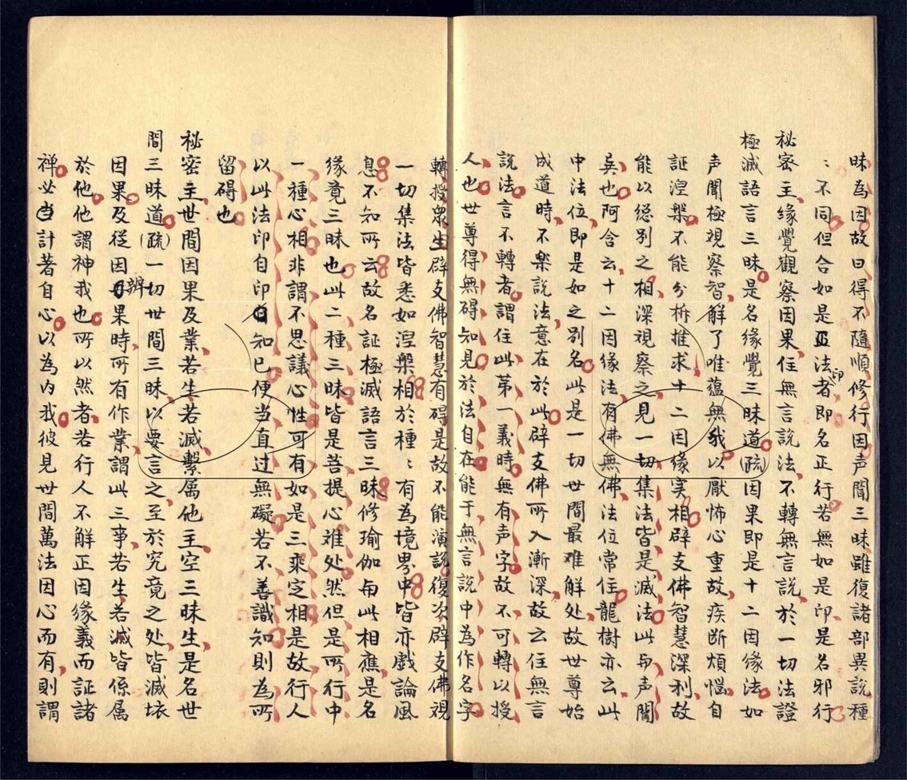 昧為因故曰得不隨順修行因声聞三昧雖復諸部異說種
：不同但合如是法印者即名正行若無如是印是名邪行
秘密主緣覺觀察因果住無言說法不轉無言說於一切法證
極滅語言三昧是名緣覺三昧道（疏）因果即是十二因緣法如
声聞極視察智解了唯蘊無我以厭怖心重故疾断煩惱自
証涅槃不能分柝推求十二因緣实相辟支佛智慧深利故
能以總别之相深視察之見一切集法皆是滅法此与声聞
異也阿含云十二因緣法有佛無佛法位常住龍樹亦云此
中法位即是如之别名此是一切世間最难解处故世尊始
成道時不樂説法意在於此辟支佛所入漸深故云住無言
説法言不轉者謂住此第一義時無有声字故不可轉以授
人也世尊得無碍知見於法自在能于無言說中為作名字
轉授眾生辟支佛智慧有碍是故不能演說復次辟支佛視
一切集法皆悉如涅槃相於種：有為境界中皆亦戲論風
息不知所云故名証極滅語言三昧修瑜伽与此相應是名
緣竟三昧也此二種三昧皆是菩提心难处然但是所行中
一種心相非謂不思議心性可有如是三乘定相是故行人
以此法印自印知已便当直过無礙若不善識知則為所
留碍也
秘密主世間因果及業若生若滅繫属他主空三昧生是名世
間三昧道（疏）一切世間三昧以要言之至於究竟之处皆滅壞
因果及從因辦果時所有作業謂此三事若生若滅皆係属
於他他謂神我也所以然者若行人不解正因緣義而証諸
禅必当計著自心以為内我彼見世間萬法因心而有則謂